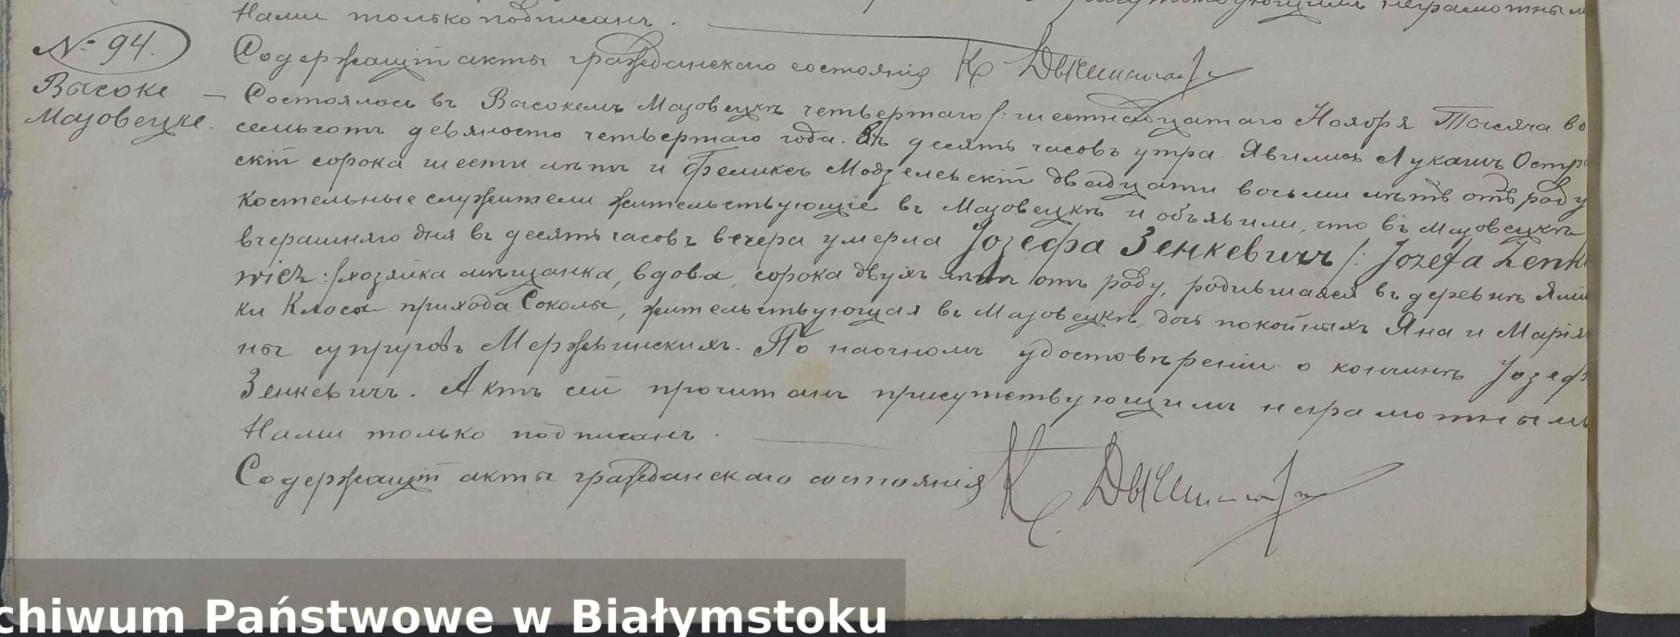 Нами только подписанъ.
№ 94.
Содержащій акты гражданскаго состоянія К
Высоке
Мазовецке.
Состоялось въ Высокемъ Мазовецкѣ четвертаго /: шестнадцатаго Ноября Тысяча во
семьсотъ девяносто четвертаго года. Въ десять часовъ утра. Явились Лукашъ Остр
скій сорока шести лѣтъ и Феликсъ Модзелевскій двадцати восьми лѣтъ отъ роду
костельные служители жительствующіе въ Мазовецкѣ и объявили, что въ Мазовецкѣ
вчерашняго дня въ десять часовъ вечера умерла Іозефа Зенкевичъ /: Józefa Zenk
wicz :/ хозяйка мѣщанка, вдова, сорока двухъ лѣтъ отъ роду, родившаяся въ деревнѣ Ями
ки Класы прихода Соколы, жительствующая въ Мазовецкѣ, дочь покойныхъ Яна и Марія
ны супруговъ Мержвинскихъ. По наочномъ удостовѣреніи о кончинѣ Іозеф
Зенкевичъ. Актъ сей прочитанъ присутствующимъ неграмотнымъ
Нами только подписанъ.
Содержащій акты гражданскаго состоянія К.
chiwum Państwowe w Białymstoku